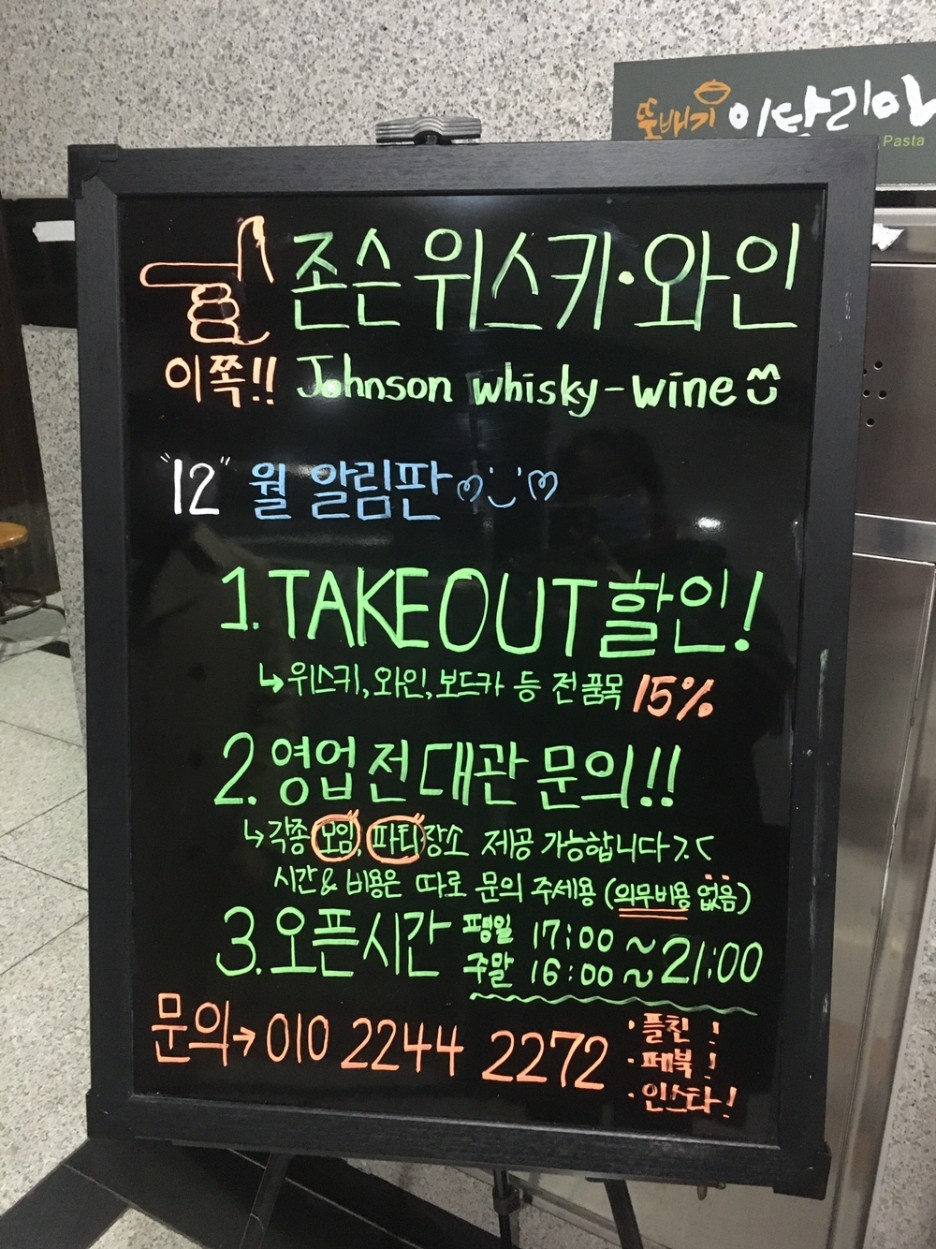 뚝배기 이탈리아
Pasta
존슨 위스키·와인
이쪽!! Johnson whisky-wine
"12"월 알림판
1. TAKEOUT 할인!
↳위스키, 와인, 보드카 등 전품목 15%
2. 영업전 대관 문의!!
↳각종 모임, 파티 장소 제공 가능합니다
시간& 비용은 따로 문의 주세용 (의무비용 없음)
3. 오픈시간 평일 17:00 ~ 21:00
주말 16:00 ~
문의→ 010 2244 2272
·플친 !
·페북 !
·인스타!